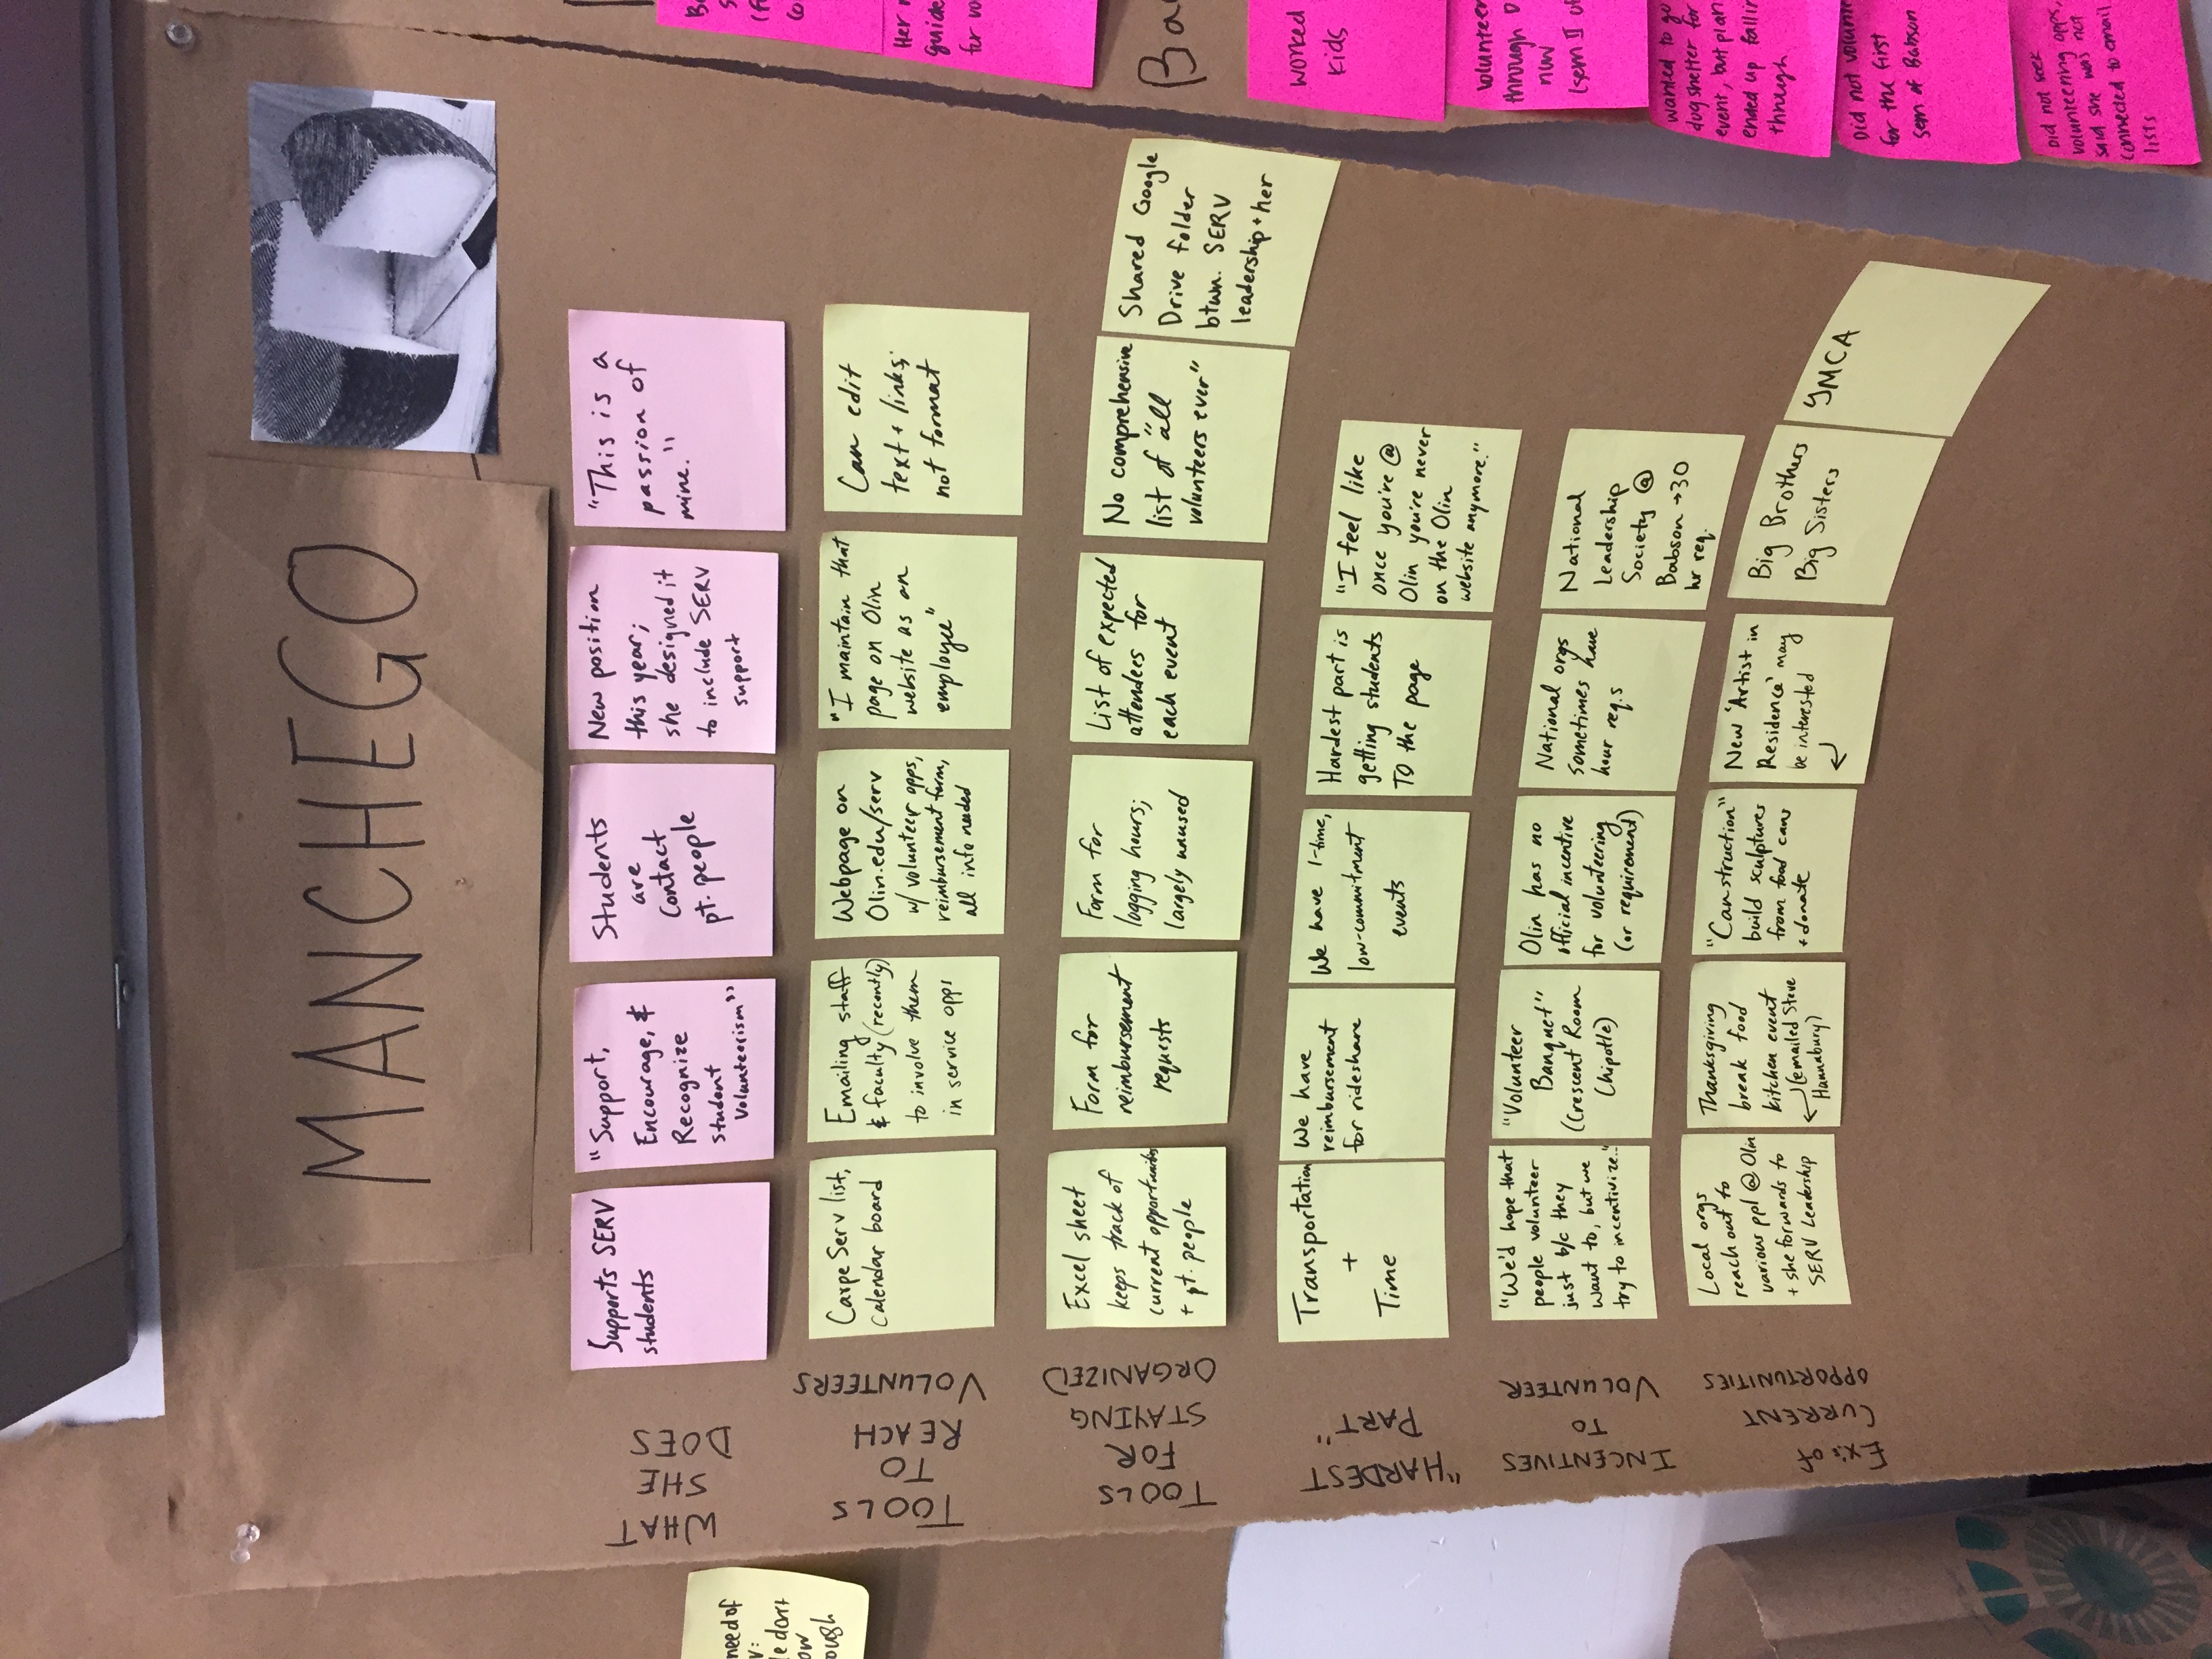 MANCHEGO
WHAT
SHE
DOES
Supports SERV
students
"Support,
Encourage, &
Recognize
student
Volunteerism"
Students
are
Contact
pt. people
New position
this year;
she designed it
to include SERV
support
"This is a
passion of
mine."
TOOLS
TO
REACH
VOLUNTEERS
Carpe Serv list,
Calendar board
Emailing staff
& faculty (recently)
to involve them
in service opps
Webpage on
Olin.edu/serv
w/ volunteer opps,
reimbursement form,
all info needed
"I maintain that
page on Olin
website as an
employee"
Can edit
text + links;
not format
TOOLS
FOR
STAYING
ORGANIZED
Excel sheet
keeps track of
current opportunities
+ pt. people
Form for
reimbursement
requests
Form for
logging hours;
largely unused
List of expected
attendees for
each event
No comprehensive
list of "all
volunteers ever"
Shared Google
Drive folder
btwn. SERV
leadership + her
"HARDEST
PART"
Transportation
+
Time
We have
reimbursement
for rideshare
We have 1-time,
low-commitment
events
Hardest part is
getting students
TO the page
"I feel like
once you're @
Olin you're never
on the Olin
website anymore."
INCENTIVES
TO
VOLUNTEER
"We'd hope that
people volunteer
just b/c they
want to, but we
try to incentivize."
"Volunteer
Banquet"
(Crescent Room
Chipotle)
Olin has no
official incentive
for volunteering
(or requirement)
National orgs
sometimes have
hour req.s
National
Leadership
Society @
Babson →30
hr req.
Ex's of
CURRENT
OPPORTUNITIES
Local orgs
reach out to
various ppl @ Olin
+ she forwards to
SERV Leadership
Thanksgiving
break food
kitchen event
(emailed Steve
Hannabury)
"Canstruction"
build sculptures
from food cans
+ donate
New 'Artist in
Residence' may
be interested
Big Brothers
Big Sisters
YMCA
need of
v:
le don't
ow
ough
Her
guide
for vo
Ba
worked
kids
Volunteer
through
now
(sem II
wanted to go
dog shelter for
event, but plan
ended up fallin
through
Did not volunt
for the first
sem of Babson
Did not seek
volunteering opps,
said she was not
connected to email
lists